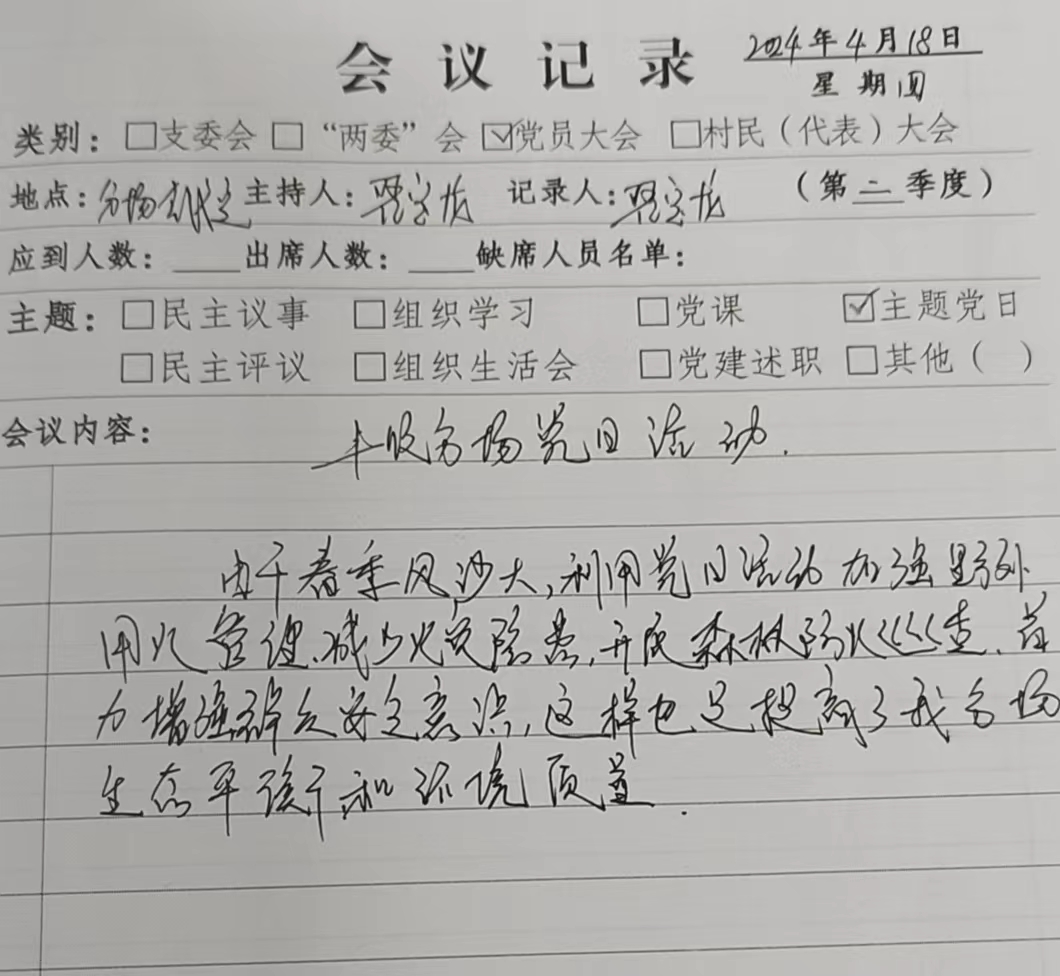 会议记录 2024年4月18日
星期四
类别：□支委会 □“两委”会 ☑党员大会 □村民（代表）大会
地点：分场 主持人： 记录人： （第二季度）
应到人数：____出席人数：____缺席人员名单：
主题：□民主议事 □组织学习 □党课 ☑主题党日
□民主评议 □组织生活会 □党建述职 □其他（ ）
会议内容： 丰收分场党日活动.
由于春季风沙大,利用党日活动加强野外
用火管理.减少火灾隐患,开展森林防火巡查.着
力增强群众安全意识,这样也是提高了我分场
生态平衡和环境质量.